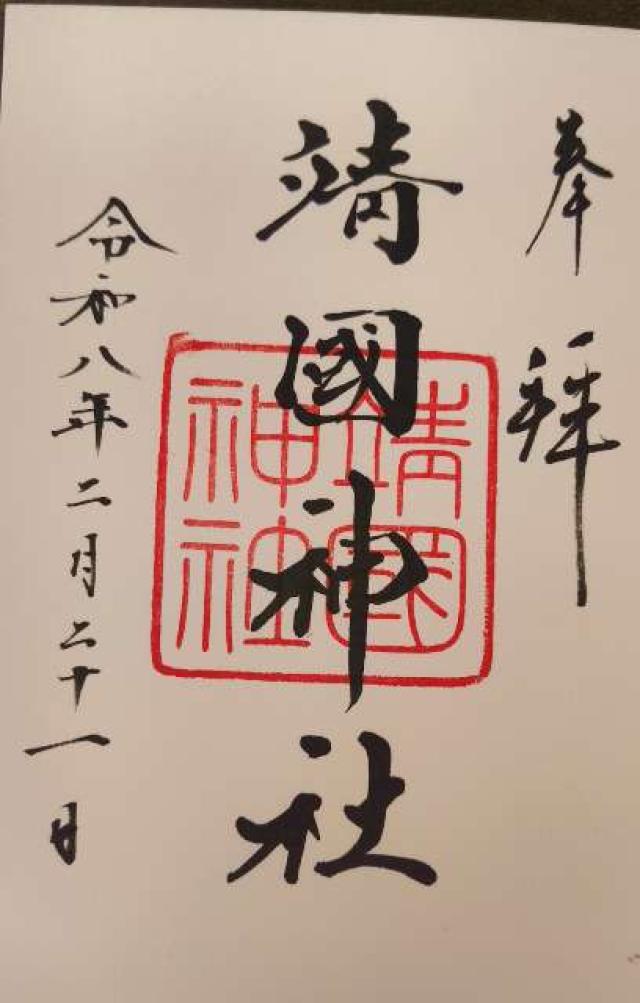 奉拝
靖國神社
靖國
神社
令和八年二月二十一日